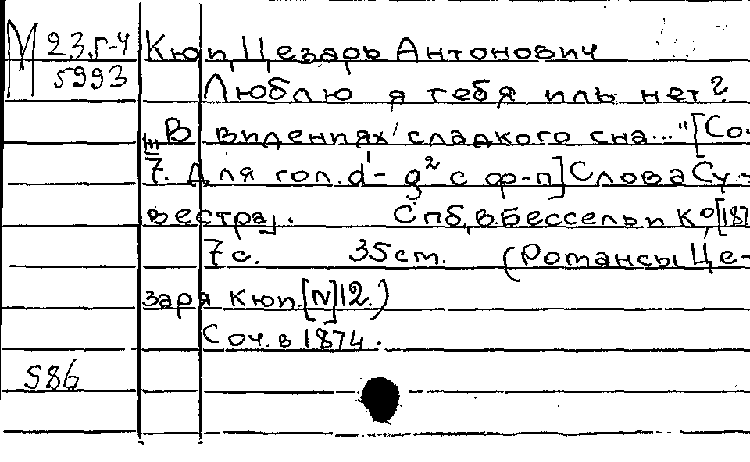 М 23.5-4 Кюи, Цезарь Антонович
5993 Люблю я тебя иль нет?
"В видениях сладкого сна..." [Соч.
7. Для гол. d¹- g² с ф-п] Слова Су-
вестра].  Спб, В. Бессель и К⁰, [187
7 с.  35 см.  (Романсы Це-
заря Кюи [N] 12.)
Соч. в 1874.
586